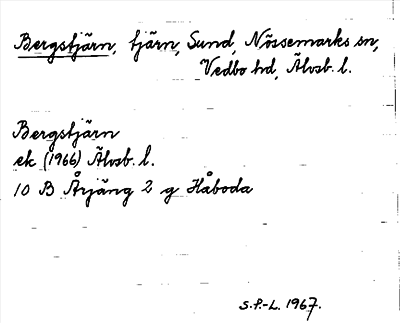 Bergstjärn, tjärn, Sund, Nössemarks sn,
Vedbo hd, Älvsb. l.
Bergstjärn
ek (1966) Älvsb. l.
10 B Årjäng 2 g Håboda
S.P.-L. 1967.